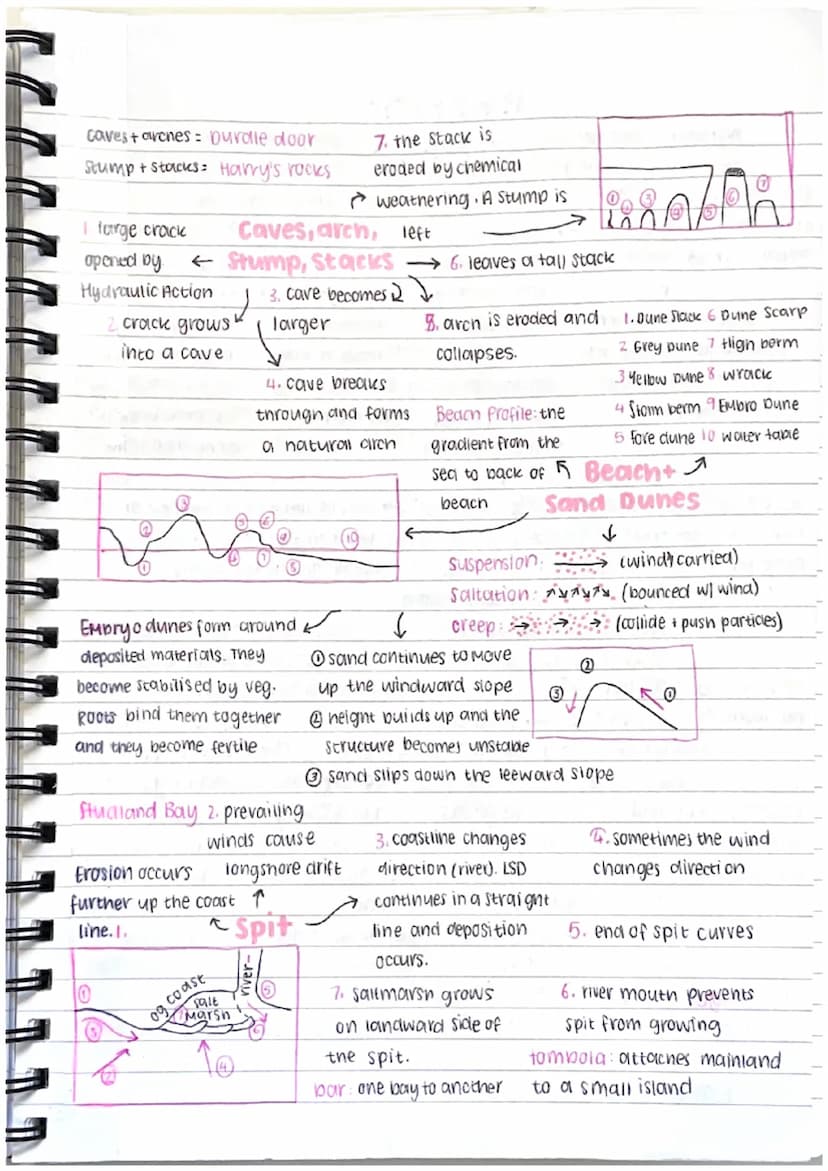 caves + arches = Durdle door
Stump + stacks = Harry's rocks
7. the stack is
eroded by chemical
weathering. A stump is
left
Caves, arch,
Stump, Stacks
1 large crack
opened by
Hydraulic Action
2 crack grows
into a cave
3. cave becomes
larger
4. cave breaks
through and forms
a natural arch
6. leaves a tall stack
5. arch is eroded and
collapses.
1 2 3 4 5 6 7
1. Dune Slack 6 Dune Scarp
2 Grey Dune 7 High berm
3 Yellow Dune 8 wrack
4 Storm berm 9 Embro Dune
5 fore dune 10 water table
Beach Profile: the
gradient from the
sea to back of
beach
Beach +
Sand Dunes
suspension: (wind carried)
Saltation: (bounced w/ wind)
creep: (collide + push particles)
Embryo dunes form around
deposited materials. They
become stabilised by veg.
Roots bind them together
and they become fertile
① sand continues to move
up the windward slope
② height builds up and the
structure becomes unstable
③ sand slips down the leeward slope
② ③ ①
Studland Bay
Spit
Erosion occurs
further up the coast
line. 1.
2. prevailing
winds cause
longshore drift
3. coastline changes
direction (river). LSD
continues in a straight
line and deposition
occurs.
4. sometimes the wind
changes direction
5. end of spit curves
6. river mouth prevents
spit from growing
7. saltmarsh grows
on landward side of
the spit.
tombola: attaches mainland
to a small island
bar: one bay to another
og coast
salt
marsh
river